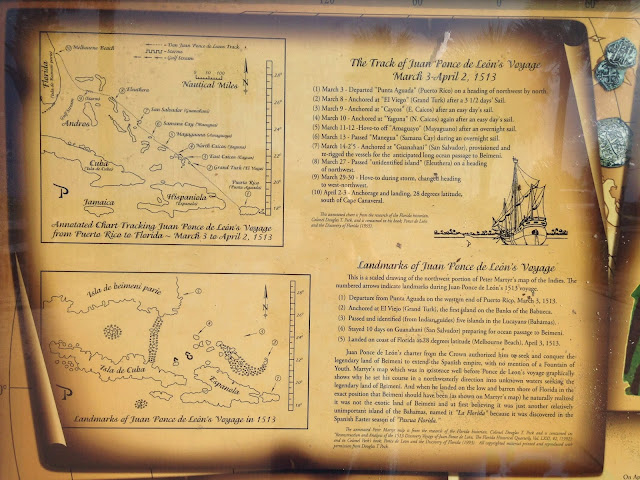 Melbourne Beach
True Juan Ponce de León Track
Nautical Miles
Florida
Eleuthera
Andros
San Salvador (Guanahani)
Samana Cay
Mayaguana
North Caicos (Yaguna)
East Caicos
Grand Turk (El Viejo)
Cuba
(Isla de Cuba)
Puerto Rico
Hispaniola
(Isla Española)
Jamaica
Annotated Chart Tracking Juan Ponce de León's Voyage
from Puerto Rico to Florida ~ March 3 to April 2, 1513
Isla de beimeni parte
Isla de Cuba
Espanola
Landmarks of Juan Ponce de León's Voyage in 1513
The Track of Juan Ponce de León's Voyage
March 3-April 2, 1513
(1) March 3 - Departed "Punta Aguada" (Puerto Rico) on a heading of northwest by north.
(2) March 8 - Anchored at "El Viejo" (Grand Turk) after a 3 1/2 days' Sail.
(3) March 9 - Anchored at "Caycos" (E. Caicos) after an easy day's sail.
(4) March 10 - Anchored at "Yaguna" (N. Caicos) again after an easy day's sail.
(5) March 11-12 -Hove-to off "Amaguayo" (Mayaguano) after an overnight sail.
(6) March 13 - Passed "Manegua" (Samana Cay) during an overnight sail.
(7) March 14-25 - Anchored at "Guanahani" (San Salvador), provisioned and
re-rigged the vessels for the anticipated long ocean passage to Beimeni.
(8) March 27 - Passed "unidentified island" (Eleuthera) on a heading
of northwest.
(9) March 29-30 - Hove-to during storm, changed heading
to west-northwest.
(10) April 2-3 - Anchorage and landing, 28 degrees latitude,
south of Cape Canaveral.
The annotated chart is from the research of the Florida historian,
Colonel Douglas T. Peck, and is contained in his book, Ponce de León
and the Discovery of Florida (1993).
Landmarks of Juan Ponce de León's Voyage
This is a scaled drawing of the northwest portion of Peter Martyr's map of the Indies. The
numbered arrows indicate landmarks during Juan Ponce de León's 1513 voyage.
(1) Departure from Punta Aguada on the western end of Puerto Rico, March 3, 1513.
(2) Anchored at El Viejo (Grand Turk), the first island on the Banks of the Babueca.
(3) Passed and identified (from Indian guides) five islands in the Lucayans (Bahamas).
(4) Stayed 10 days on Guanahani (San Salvador) preparing for ocean passage to Beimeni.
(5) Landed on coast of Florida at 28 degrees latitude (Melbourne Beach), April 3, 1513.
Juan Ponce de León's charter from the Crown authorized him to seek and conquer the
legendary land of Beimeni to extend the Spanish empire, with no mention of a Fountain of
Youth. Martyr's map which was in existence well before Ponce de León's voyage graphically
shows why he set his course in a northwesterly direction into unknown waters seeking the
legendary land of Beimeni. And when he landed on the low and barren shore of Florida in the
exact position that Beimeni should have been (as shown on Martyr's map) he naturally realized
it was not the exotic land of Beimeni and at first believing it was just another relatively
unimportant island of the Bahamas, named it "La Florida" because it was discovered in the
Spanish Easter season of "Pascua Florida."
The annotated Peter Martyr map is from the research of the Florida historian, Colonel Douglas T. Peck